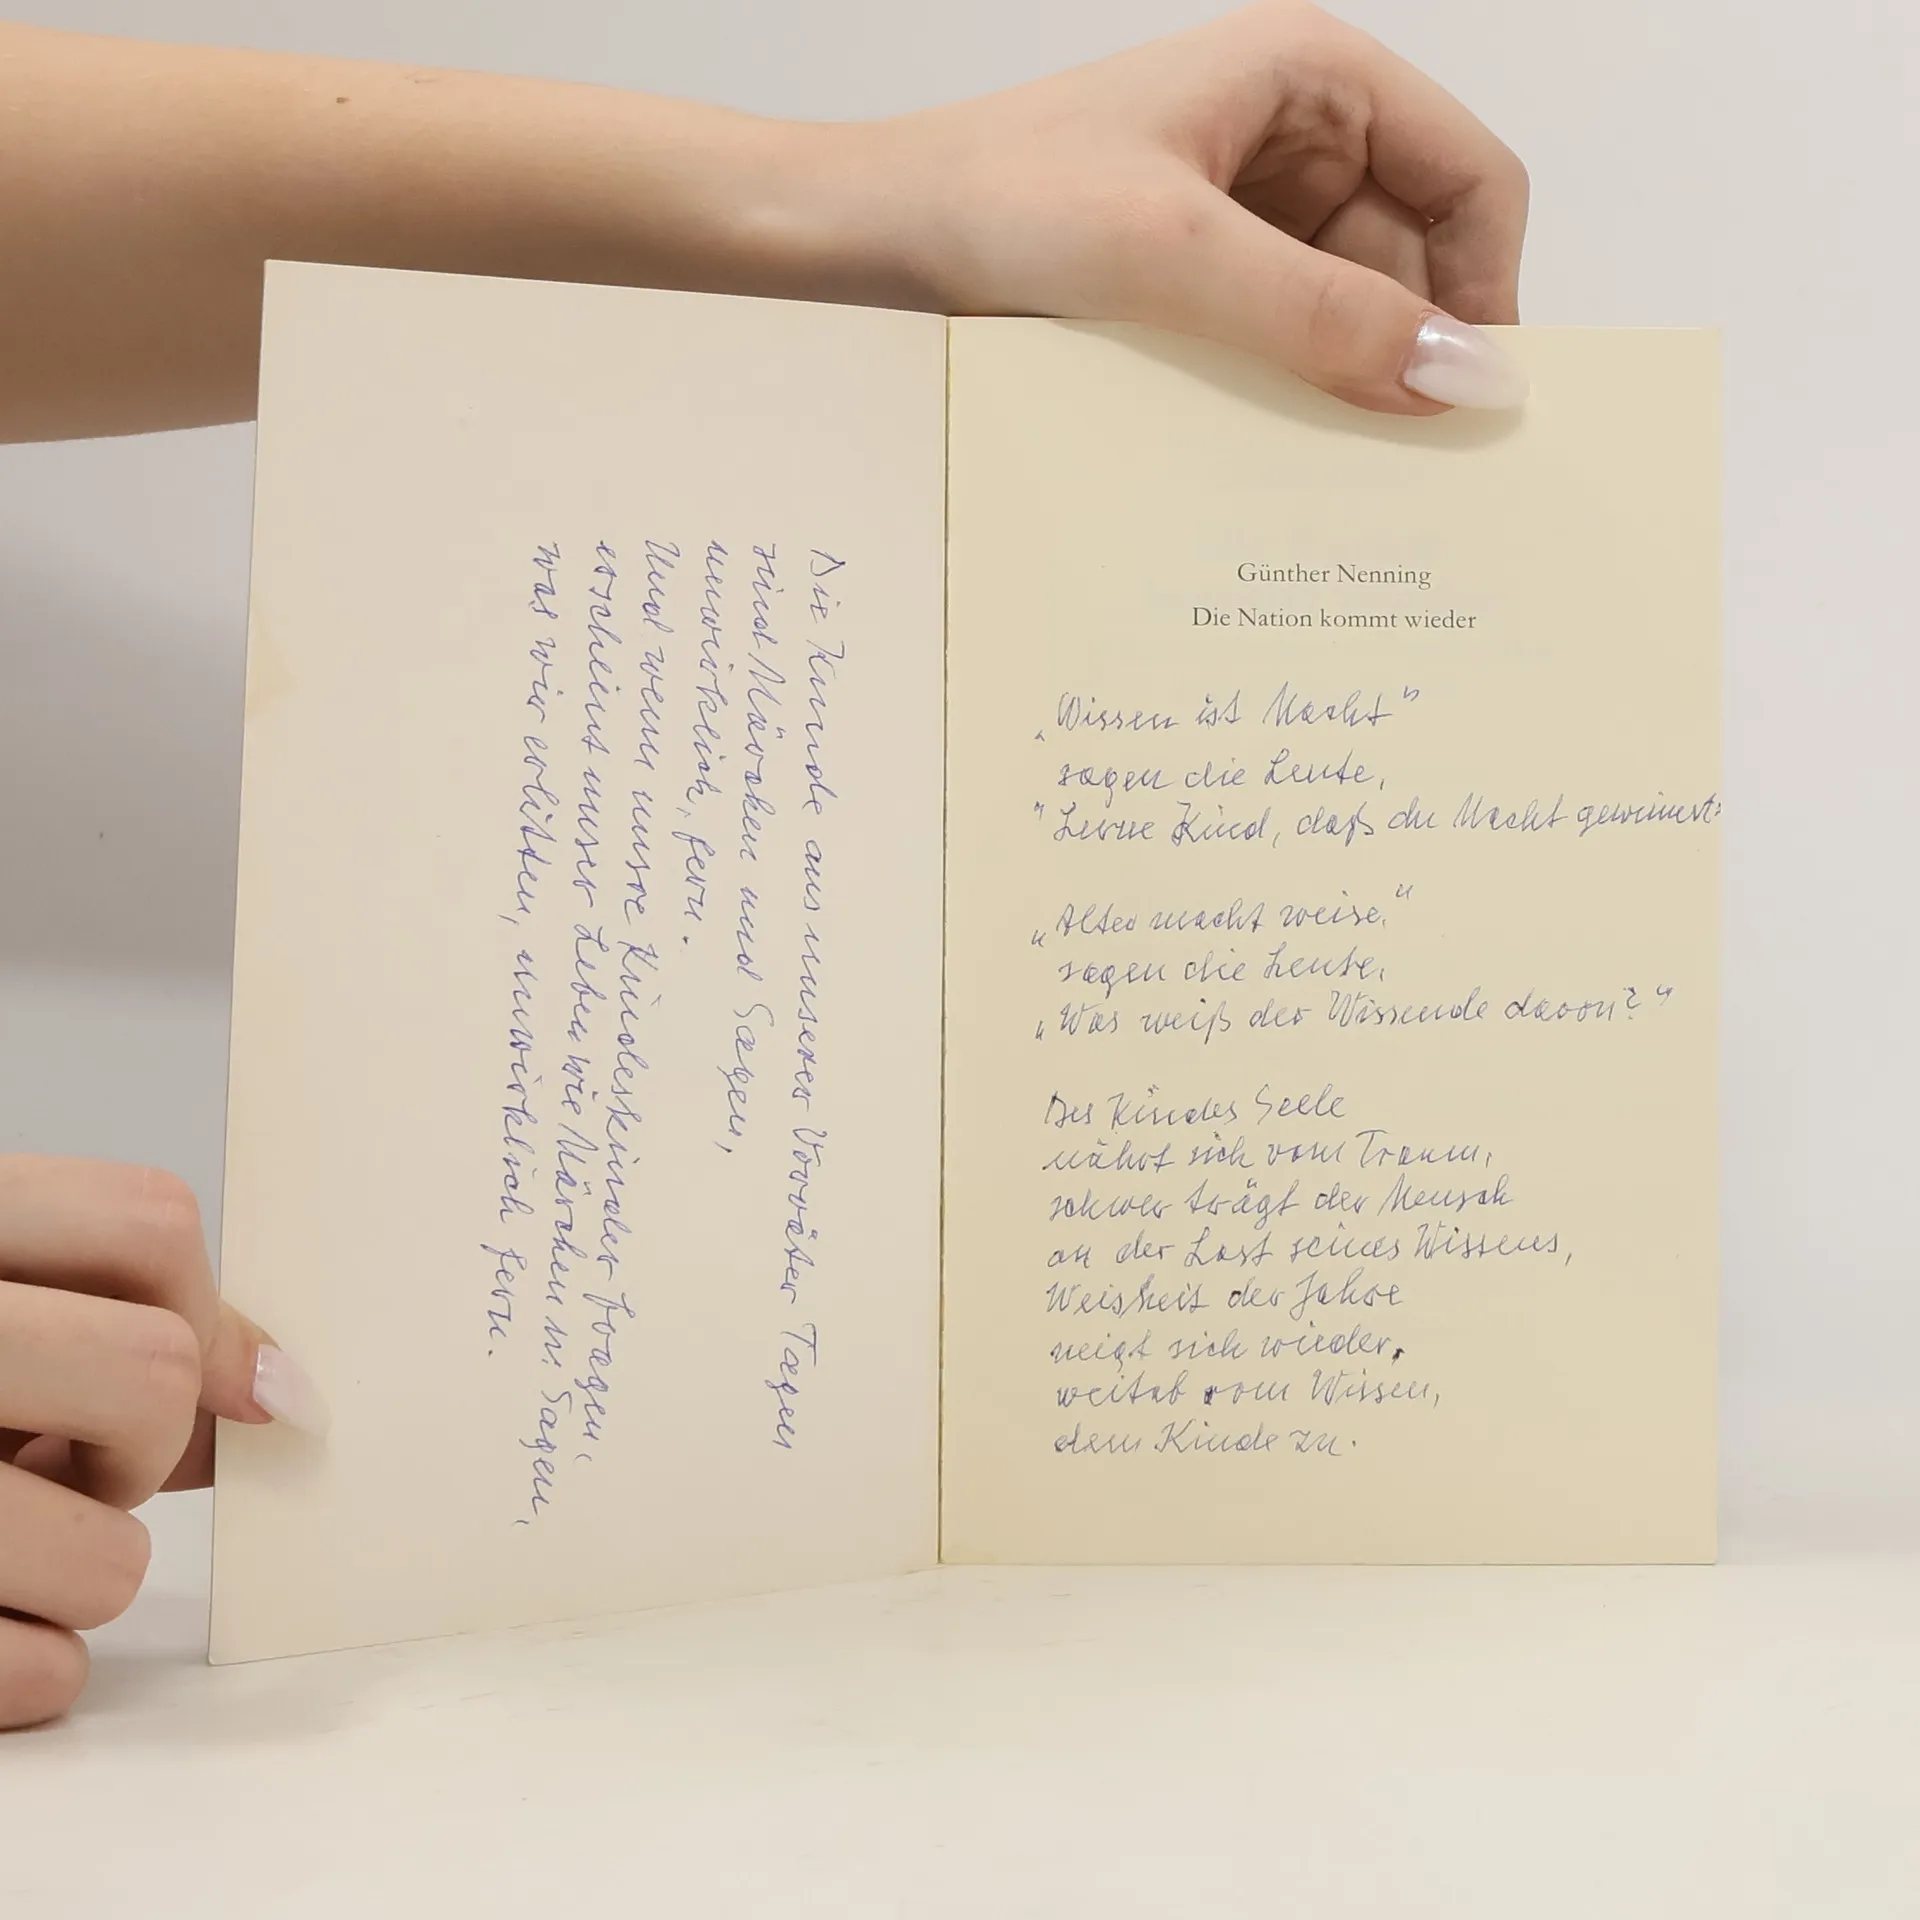 Die Kunde aus unserer Vorväter Tagen
sind Märchen und Sagen,
unwirklich, fern.
Und wenn unsre Kindeskinder fragen,
erscheint unser Leben wie Märchen u. Sagen,
was wir erlitten, unwirklich fern.
Günther Nenning
Die Nation kommt wieder
„Wissen ist Macht"
sagen die Leute,
"Lerne Kind, daß du Macht gewinnest."
„Alter macht weise."
sagen die Leute,
„Was weiß der Wissende davon?"
Des Kindes Seele
nährt sich vom Traum,
schwer trägt der Mensch
an der Last seines Wissens,
Weisheit der Jahre
neigt sich wieder,
weitab vom Wissen,
dem Kinde zu.